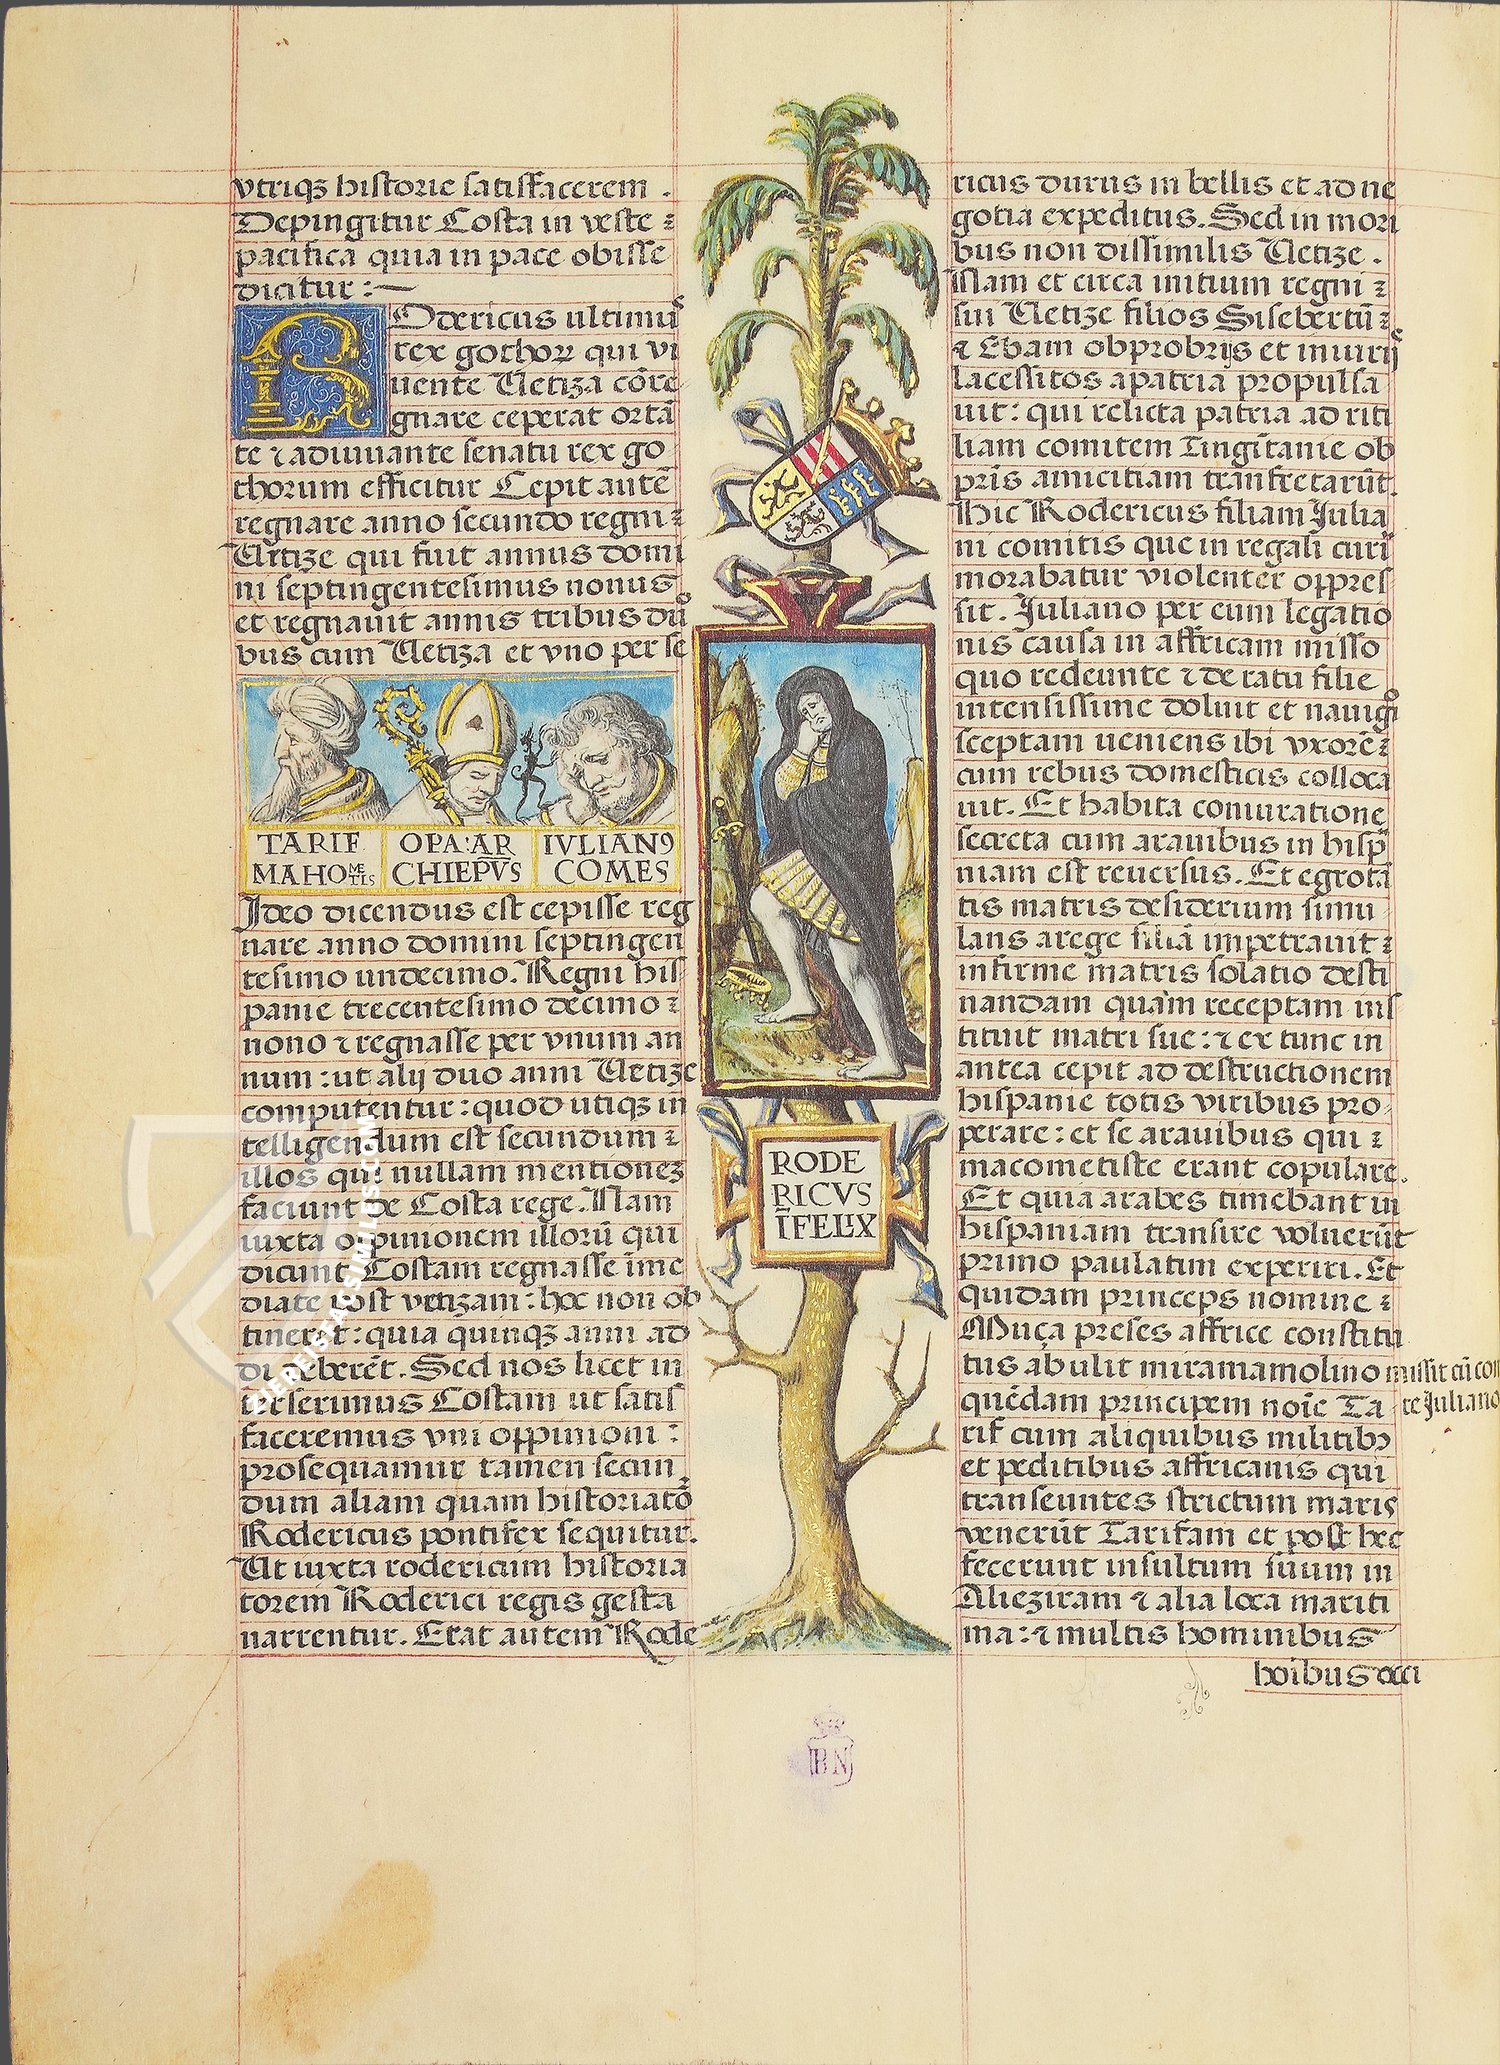 vtriqȝ historie satisfacerem .
Depingitur Costa in veste ⁊
pacifica quia in pace obisse
dicitur :—
ROdericus ultimus
rex gothoꝝ qui vi
uente Uetiza cōre
gnare ceperat ortā
te ⁊ adiuuante senatu rex go
thorum efficitur Cepit autē
regnare anno secundo regni ⁊
Uetize qui fuit annus domi
ni septingentesimus nonus
et regnauit annis tribus duo
bus cum Uetiza et vno per se
TARIF
MAHOMETIS
OPA:AR
CHIEP̄VS
IVLIANꝰ
COMES
Ideo dicendus est cepisse reg
nare anno domini septingen
tesimo undecimo. Regni his
panie trecentesimo decimo ⁊
nono ⁊ regnasse per vnum an
num : ut alij duo anni Uetize
computentur : quod utiqȝ in
telligendum est secundum ⁊
illos qui nullam mentionez
faciunt de Costa rege. Nam
iuxta oppinionem illorū qui
dicunt Costam regnasse ime
diate post vetizam : hoc non ob
tineret : quia quinqȝ anni ad
di deberēt. Sed nos licet in
terserimus Costam ut satis
faceremus vni oppinioni :
prosequamur tamen secun
dum aliam quam historiatō
Rodericus pontifex sequitur.
Ut iuxta rodericum historia
torem Roderici regis gesta
narrentur. Erat autem Rode
RODE
RICVS
ĪFELIX
ricus durus in bellis et ad ne
gotia expeditus. Sed in mori
bus non dissimilis Uetize .
Nam et circa initium regni ⁊
sui Uetize filios Sisebertū ⁊
⁊ Ebam obprobrijs et iniurijs
lacessitos a patria propulsa
uit : qui relicta patria ad riti
liam comitem Tingitanie ob
pr̄is amicitiam transfretarūt.
Hic Rodericus filiam Julia
ni comitis que in regali curia
morabatur violenter oppres
sit. Juliano per eum legatio
nis causa in affricam misso
quo redeunte ⁊ de ratu filie
intensissime doluit et nauigo
sceptam ueniens ibi vxorē ⁊
cum rebus domesticis colloca
uit. Et habita coniuratione
secreta cum arauibus in hispa
niam est reuersus. Et egrotā
tis matris desiderium simu
lans a rege filiā impetrauit ⁊
infirme matris solatio desti
nandam quam receptam ins
tituit matri sue : ⁊ ex tunc in
antea cepit ad destructionem
hispanie totis viribus pro
perare : et se arauibus qui ⁊
macometiste erant copulare.
Et quia arabes timebant in
hispaniam transire voluerūt
primo paulatim experiri. Et
quidam princeps nomine ⁊
Muça preses affrice constitu
tus ab ulit miramamolino missit cū com
quēdam principem noīe Ta te Juliano
rif cum aliquibus militibꝰ
et peditibus affricanis qui
transeuntes strictum maris
venerūt Tarifam et post hec
fecerunt insultum suum in
Alieziram ⁊ alia loca mariti
ma : ⁊ multis hominibus
hoibus occi
BN